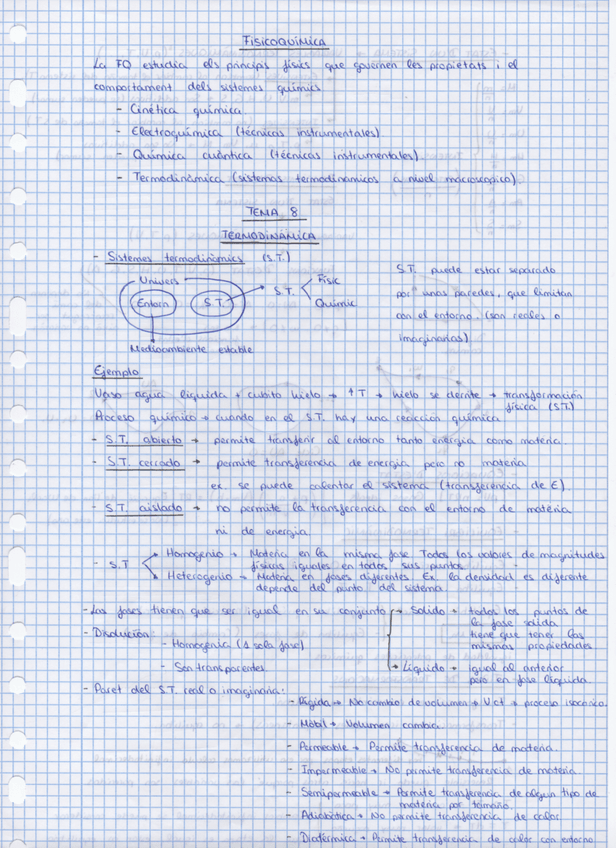 FISICOQUÍMICA
La FQ estudia els principis físics que governen les propietats i el
comportament dels sistemes químics
- Cinética química
- Electroquímica (técnicas instrumentales)
- Química cuántica (técnicas instrumentales).
- Termodinámica (sistemas termodinamicos a nivel macroscopico).
TEMA 8
TERMODINÀMICA
- Sistemes termodinàmics (S.T.)
Univers
Entorn
S.T.
S.T.
Físic
Químic
Medioambiente estable
S.T. puede estar separado
por unas paredes, que limitan
con el entorno. (son reales o
imaginarias)
Ejemplo
Vaso agua líquida + cubito hielo → ↑T → hielo se derrite → transformación
física (S.T.)
Proceso químico → cuando en el S.T. hay una reacción química
- S.T. abierto → permite transferir al entorno tanto energía como materia.
- S.T. cerrado → permite transferencia de energía pero no materia
ex. se puede calentar el sistema (transferencia de E).
- S.T. aislado → no permite la transferencia con el entorno de materia
ni de energia
- S.T
Homogenio → Materia en la misma fase. Todos los valores de magnitudes
físicas iguales en todos sus puntos.
Heterogenio → Materia en fases diferentes. Ex. la densidad es diferente
depende del punto del sistema.
- Las fases tienen que ser igual en su conjunto
Solido → todos los puntos de
la fase solida
tiene que tener las
mismas propiedades
Líquido → igual al anterior
pero en fase líquida.
- Disolución:
- Homogénia (1 sola fase)
- Son transparentes.
- Paret del S.T. real o imaginaria:
- Rígida → No cambio de volumen → V ct → proceso isocórico.
- Móbil → Volumen cambia.
- Permeable → Permite transferencia de materia.
- Impermeable → No permite transferencia de materia.
- Semipermeable → Permite transferencia de algun tipo de
materia por tamaño.
- Adiabática → No permite transferencia de calor
- Diatérmica → Permite transferencia de calor con entorno